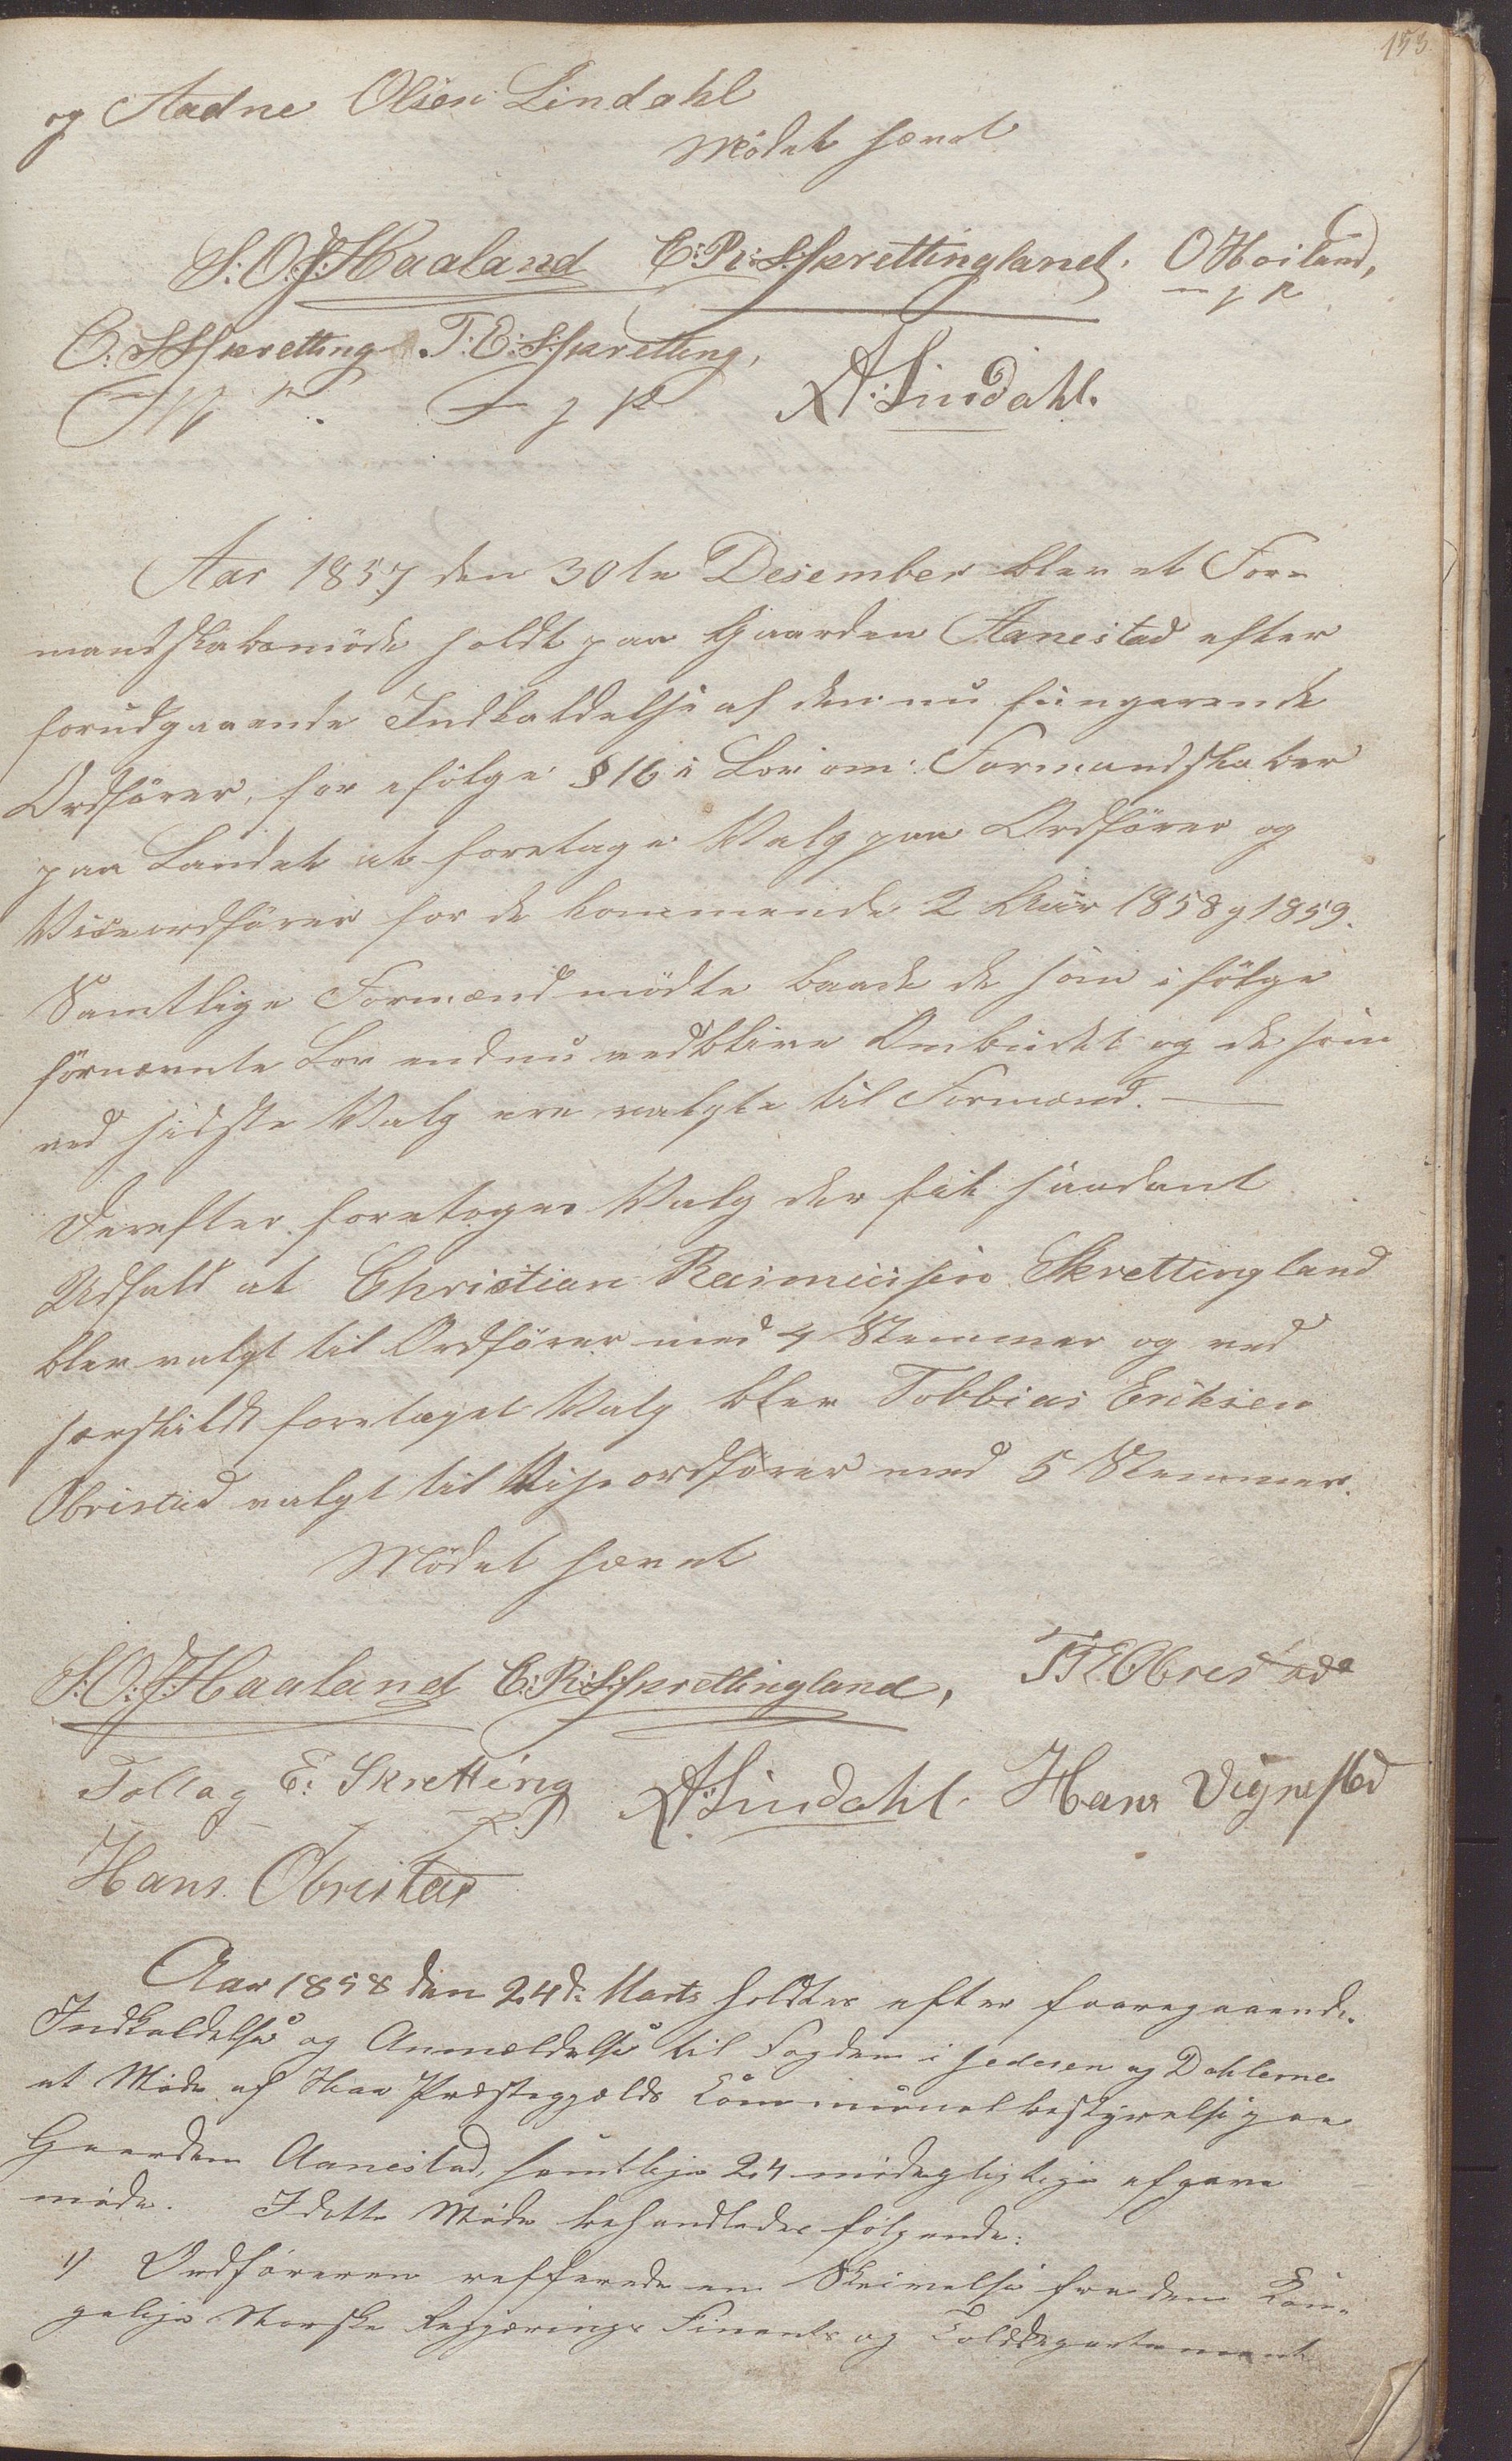 153
og Aadne Olsen Lindahl
Mødet hævet
S. O. J. Haaland C. R. Skrettingland. O Hoiland,
m f P
C. S Skretting T. E. Skretting,
m f P A. Lindahl.
Aar 1857 den 30te Desember blev et For-
mandskabsmöde holdt paa Gaarden Aanestad efter
forudgaaende Indkaldelse af den nu fungerende
Ordförer, for ifölge § 16 i Lov om Formandskaber
paa Landet at foretage Valg paa Ordförer og
Viseordförer for de kommende 2 Aar 1858 g 1859.
Samtlige Formænd mödte baade de som i fölge
förnævnte Lov endnu vedblive Ombudet og de som
ved sidste Valg ere valgte til Formænd. —
Derefter foretoges Valg der fik saadant
Udfald at Christian Rasmussen Skrettingland
blev valgt til Ordförer med 4 Stemmer og ved
særskildt foretaget Valg blev Tobbias Eriksen
Obristad valgt til Viseordförer med 5 Stemmer.
Mödet hævet
S. O. J. Haaland C. R. Skrettingland, T E Obrestad
Tollag E. Skretting A. Lindahl. Hans Vignestad
Hans Obristad
Aar 1858 den 24de Marts holdtes efter foregaaende
Indkaldelse og Anmældelse til Fogden i Jederen og Dahlerne
et Møde af Haa Præstegjælds Communalbestyrelse paa
Gaarden Aanestad, samtlige 24 mødepligtige afgave
møde. I dette Møde behandledes følgende:
1) Ordføreren refferede en Skrivelse fra den Kon-
gelige Norske Regjerings Finants og Tolddepartement